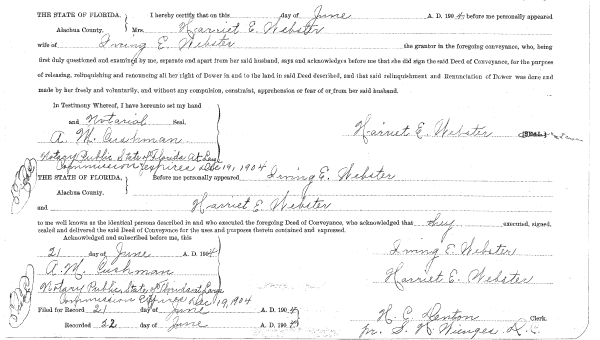 THE STATE OF FLORIDA, I hereby certify that on this day of June A. D. 1904, before me personally appeared
Alachua County. Mrs. Harriet E. Webster
wife of Irving E. Webster the grantor in the foregoing conveyance, who, being
first duly questioned and examined by me, separate and apart from her said husband, says and acknowledges before me that she did sign the said Deed of Conveyance, for the purpose
of releasing, relinquishing and renouncing all her right of Dower in and to the land in said Deed described, and that said relinquishment and Renunciation of Dower was done and
made by her freely and voluntarily, and without any compulsion, constraint, apprehension or fear of or from her said husband.
In Testimony Whereof, I have hereunto set my hand
and Notarial Seal.
A. M. Cushman Harriet E. Webster (SEAL.)
Notary Public State of Florida At Large
Commission Expires Dec 19, 1904
THE STATE OF FLORIDA, Before me personally appeared Irving E. Webster
Alachua County.
and Harriet E. Webster
to me well known as the identical persons described in and who executed the foregoing Deed of Conveyance, who acknowledged that they executed, signed,
sealed and delivered the said Deed of Conveyance for the uses and purposes therein contained and expressed.
Acknowledged and subscribed before me, this
21 day of June A. D. 1904 Irving E. Webster
A. M. Cushman Harriet E. Webster
Notary Public, State of Florida at Large
Commission Expires Dec 19, 1904
Filed for Record 21 day of June A. D. 1904 H. G. Denton Clerk.
Recorded 22 day of June A. D. 1904 pr. S. H. Wienges D. C.